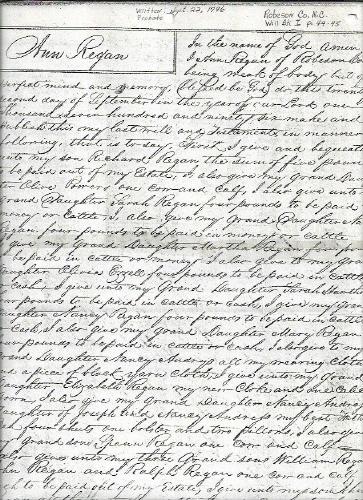 Written: Sept. 22, 1796
Probate
Robeson Co. N.C.
Will Bk I p. 44-45
Ann Regan
In the name of God Amen
I Ann Regan of Robeson Co
being weak of body but
perfect mind and memory, Blessed be God, do this twenty
second day of September in the year of our Lord one
thousand seven hundred and ninety six make and
publish this my last will and testament in manner
following, that is to say, First I give and bequeath
unto my son Richard Regan the sum of five pounds
be paid out of my Estate, I also give my Grand Dau
ter Olive Powers one cow and calf, I also give unto
grand Daughter Sarah Regan four pounds to be paid
money or cattle I also give my Grand Daughter
Regan four pounds to be paid in money or cattle
I give my Grand Daughter Martha
be paid in cattle or money I also give to my Gran
Daughter four pounds to be paid in cattle
Cash, I give unto my Grand Daughter Sarah
four pounds to be paid in cattle or cash, I give my Gran
Daughter Nancy Regan four pounds to be paid in cattle
Cash, I also give my Grand Daughter Mary Regan
pounds to be paid in cattle or Cash, I also give to m
Grand Daughter Nancy Andrus all my wearing Cloth
and a piece of black yarn Cloth, I give unto my Grand
Daughter Elizabeth Regan my new Cloke and one Calico
Gown, I also give my Grand Daughter Nancy Andrus
Daughter of Joseph and Nancy Andrus my best
four sheets one bolster and two pillows, I also giv
my grand son Regan one Cow and Calf
also give unto my three Grand sons William Rega
Regan and Ralph Regan one cow and calf
each to be paid out of my Estate, I give unto my son